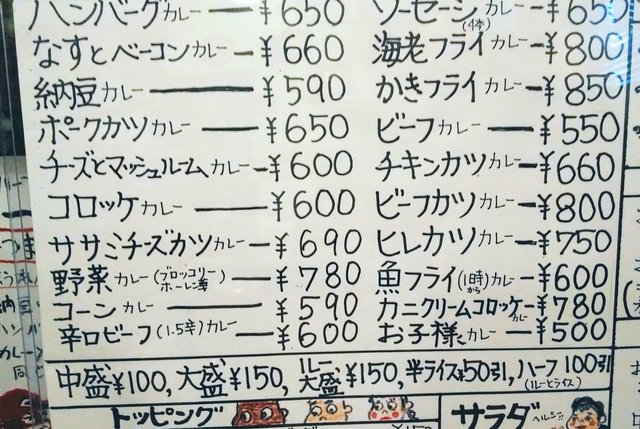 ハンバーグカレー ¥650
なすとベーコンカレー ¥660
納豆カレー ¥590
ポークカツカレー ¥650
チーズとマッシュルームカレー ¥600
コロッケカレー ¥600
ササミチーズカツカレー ¥690
野菜カレー(ブロッコリーホーレン草) ¥780
コーンカレー ¥590
辛口ビーフ(1.5辛)カレー ¥600
ソーセージ(4本)カレー ¥650
海老フライカレー ¥800
かきフライカレー ¥850
ビーフカレー ¥550
チキンカツカレー ¥660
ビーフカツカレー ¥800
ヒレカツカレー ¥750
魚フライ(1時から)カレー ¥600
カニクリームコロッケカレー ¥780
お子様カレー ¥500
中盛¥100, 大盛¥150, ルー大盛¥150, 半ライス¥50引, ハーフ100引(ルーとライス)
トッピング
サラダ